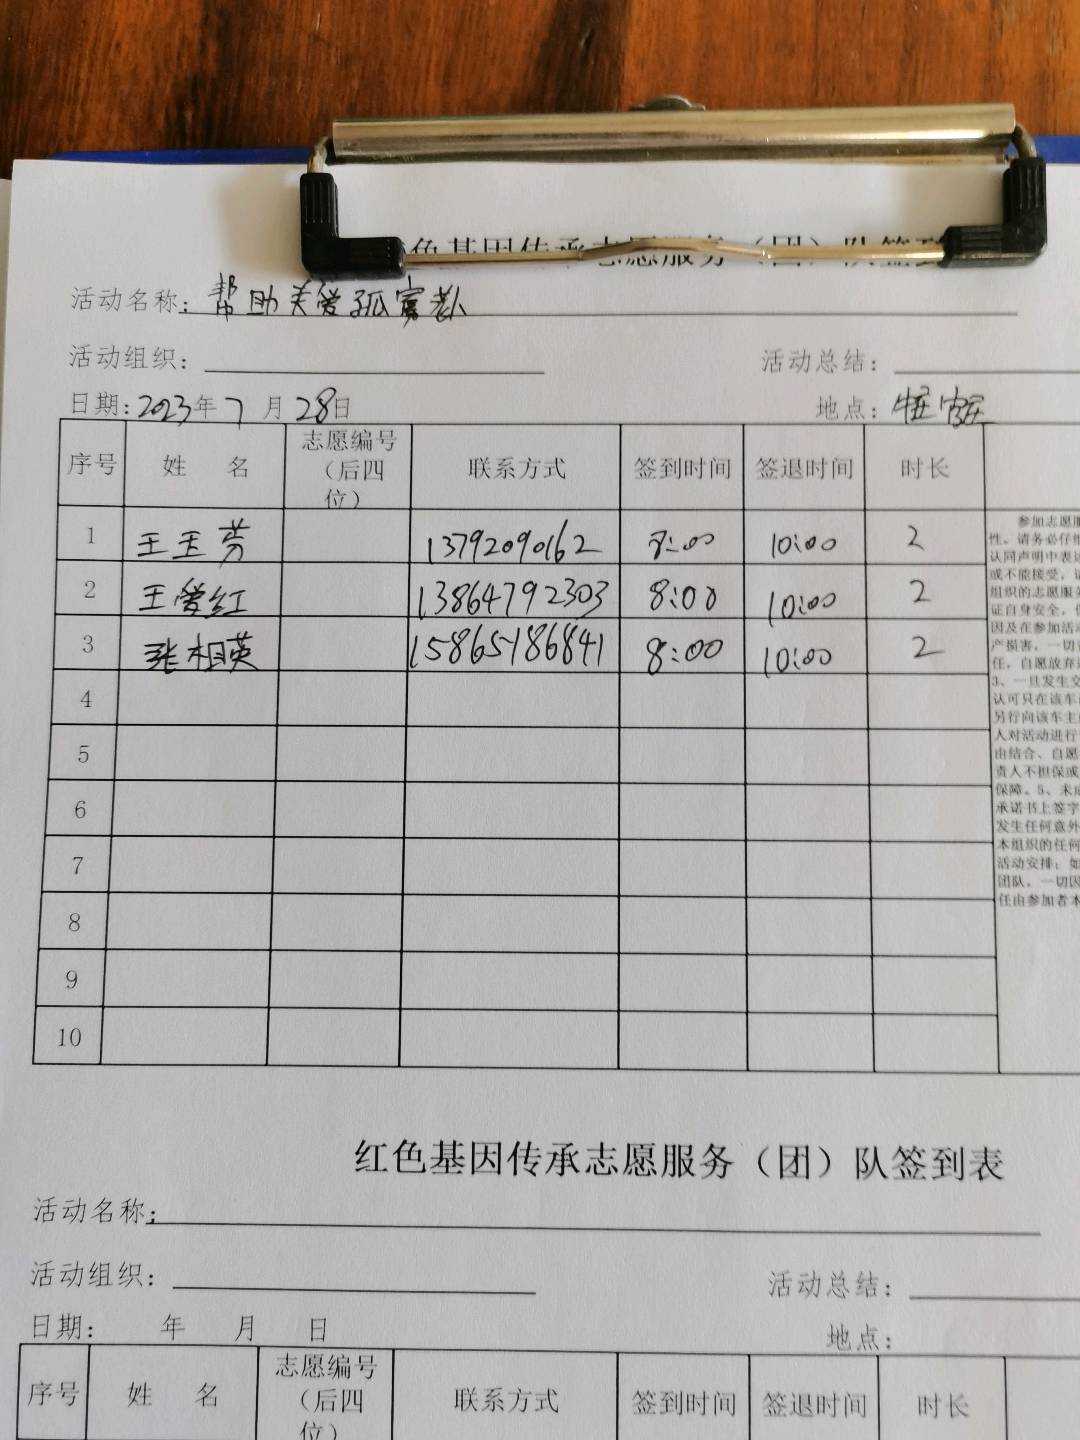 色基因传承志愿服务（团）队签到
活动名称：帮助关爱孤寡老人
活动组织： 活动总结：
日期：2023年7月28日 地点：
序号 姓 名 志愿编号（后四位） 联系方式 签到时间 签退时间 时长
1 王玉芳 13792090162 8:00 10:00 2
2 王爱红 13864792303 8:00 10:00 2
3 张相英 15865186841 8:00 10:00 2
4
5
6
7
8
9
10
参加志愿服
性。请务必仔细
认同声明中表达
或不能接受，请
组织的志愿服务
证自身安全，但
因及在参加活动
产损害，一切责
任，自愿放弃追
3、一旦发生交
认可只在该车
另行向该车主
人对活动进行
由结合、自愿
责人不担保或
保障。5、未成
承诺书上签字
发生任何意外
本组织的任何
活动安排；如
团队。一切因
任由参加者本
红色基因传承志愿服务（团）队签到表
活动名称：
活动组织： 活动总结：
日期： 年 月 日 地点：
序号 姓 名 志愿编号（后四位） 联系方式 签到时间 签退时间 时长